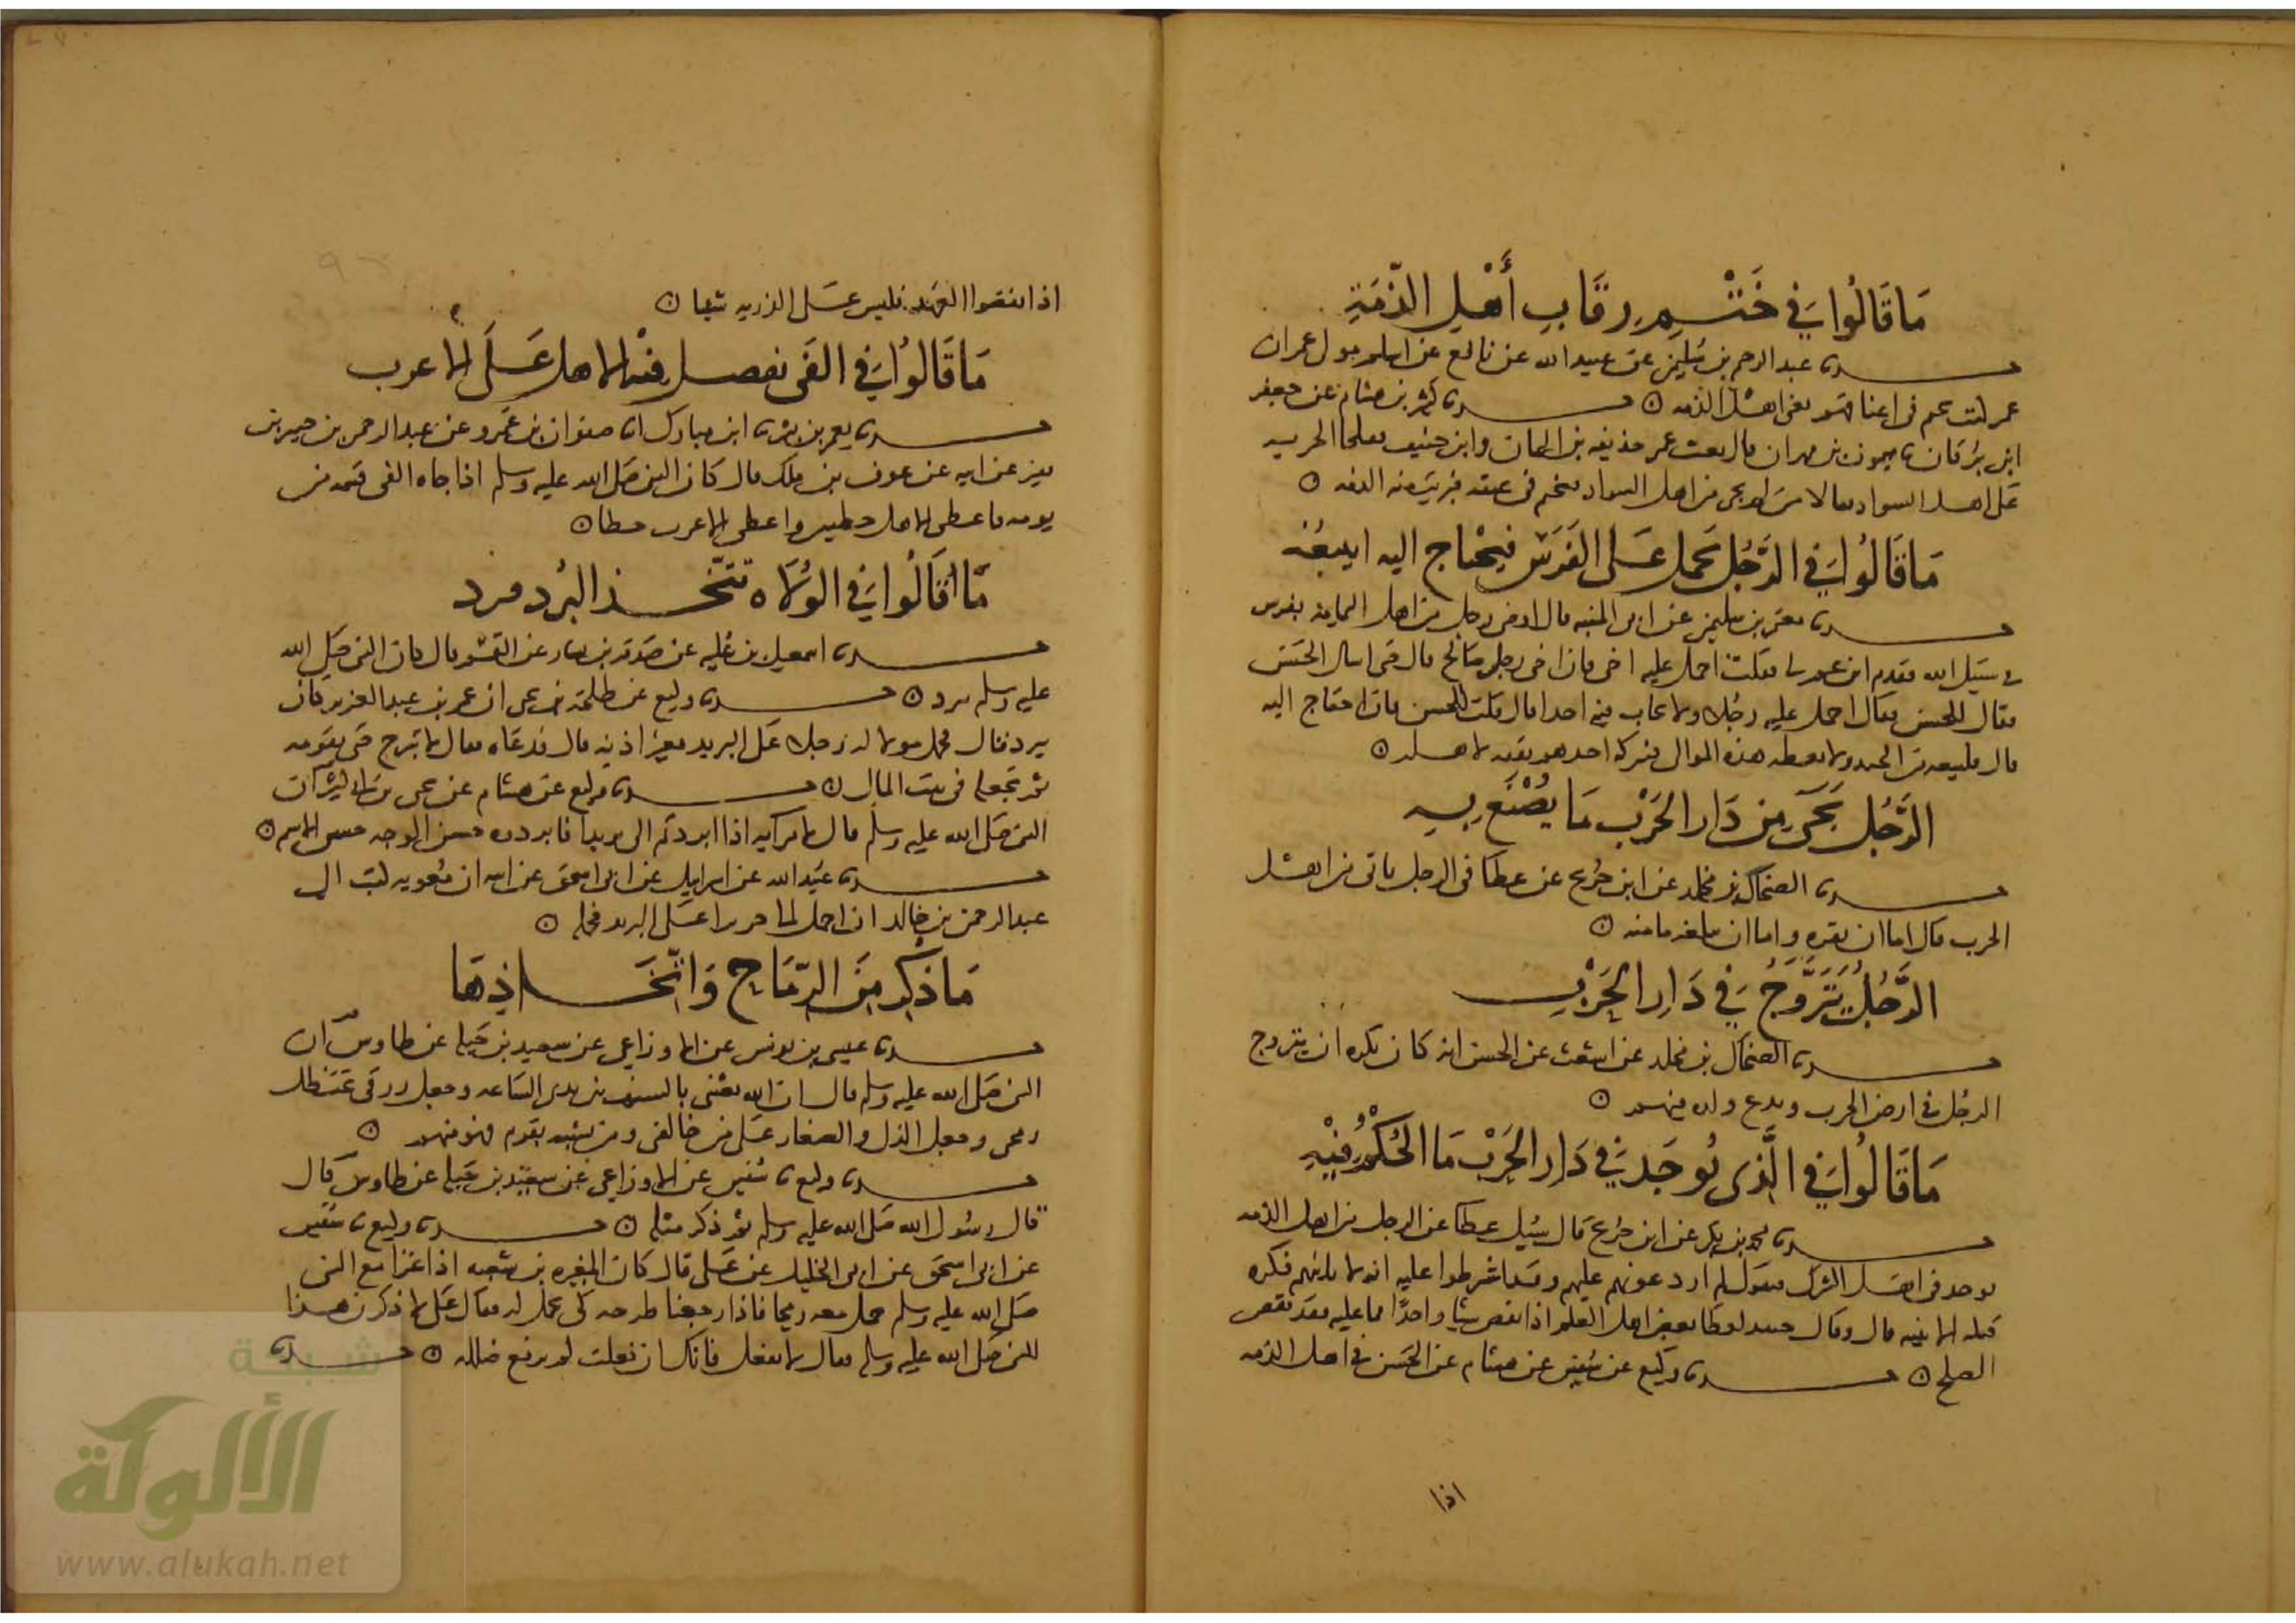 مَا قَالُوا فِي خَتْمِ رِقَابِ أَهْلِ الذِّمَّةِ
حدثنا عبد الرحيم بن سليمن عن عبيد الله عن نافع عن اسلم مولى عمر ان
عمر كتب في اعناقهم يعني اهل الذمه ن حدثنا كثير بن هشام عن جعفر
ابن برقان نا ميمون بن مهران قال بعث عمر حذيفه بن اليمان وابن حنيف ففلجا الجزيه
على اهل السواد فقالا من لم يجى من اهل السواد فختم في عنقه فبريت منه الذمه ن
مَا قَالُوا فِي الرَّجُلِ يحمل عَلى الفَرَس فيحْتَاج اليه ايبيعُه
حدثنا معتمر بن سليمن عن قال اوصى رجل من اهل اليمامه بفرس
في سَبيل الله فقدم ابن عم لي فقلت احمل عليه اخي فان اخي رجل صَالح قال حتى اسال الحَسَن
فقال للحسن فقال احمل عليه رجُلا ولا تحاب فيه احدا قال قلت للحسن فان احتاج اليه
قال فليبعه من الجند ولا يعطه هذه الموالي فيتركه احدهم نفقه لاهله ن
الرَّجُل يَجِىء مِن دَار الحَرْب مَا يُصْنَع بِهِ
حدثنا الضحاك بن مخلد عن ابن جُريج عن عطا في الرجل ياتي من اهل
الحرب قال اما ان يقره واما ان يبلغه مامنه ن
الرَّجُل يَتَزَوَّجُ فِي دَارِ الحَرْبِ
حدثنا الضحاك بن مخلد عن اشعث عن الحسن انه كان يكره ان يتزوج
الرجُل في ارض الحرب ويدع ولده فيهم ن
مَا قَالُوا فِي الَّذِى يُوجَد فِي دَارِ الحَرْب مَا الحُكْمُ فِيْهِ
حدثنا محمد بن بكر عن ابن جُريج قَال سُيل عطا عن الرجل من اهل الذمه
يوجد في اهل الشرك فيقول لم ارد عونهم عليهم وقد اشرطوا عليه ان لا ياتيهم فكره
قتله الا ببينه قال وقال حينيد لعطا بعض اهل العلم اذا نقض شيا واحدًا مما عليه فقد نقض
الصلح ن حدثنا وكيع عن سُفين عن هشام عن الحَسَن في اهل الذمه
اذا
اذا نقضوا العَهد فليس عَلى الذريه شيا ن
مَا قَالُوا فِي الفَى يفضل فيْه الاهل عَلَى الاعزب
حدثنا يعمر بن بشر نا ابن مبارك انا صفوان بن عَمرو عن عبد الرحمن بن جبير بن
نفير عن ابيه عن عوف بن ملك قال كان النبي صَلى الله عليه وسلم اذا جاه الفى قسَمه من
يومه فاعطى الاهل حظين واعطى الاعزب حظا ن
مَا قَالُوا فِي الوُلاه تتّخذ البُرد فبرد
حدثنا اسمعيل بن عُليه عن صَدقه بن يسار عن القسم قال كان النبي صَلى الله
عليه وسلم يبرد ن حدثنا وكيع عن طلحة بن يحيى ان عمر بن عبد العزيز كان
يبرد فقال فحمل مولا له رجلا عَلى البريد بغير اذنه قال فدعَاه فقال لا تبرح حتى نقومه
ثم تجعله في بيت المال ن حدثنا وكيع عن هشام عن يحيى بن ابي كثير ان
النبي صَلى الله عليه وسلم قال لامرايه اذا ابردتم الي بريدا فابردوه حسن الوجه حسن الاسم ن
حدثنا عبيد الله عن اسرايل عن ابي اسحق عن ابيه ان مُعويه كتب الى
عبد الرحمن بن خالد ان احمل الي جريرا عَلى البريد فحمله ن
مَا ذُكِرَ مِنَ الرِّمَاحِ وَاتِّخَاذِهَا
حدثنا عيسى بن يونس عن الاوزاعي عن سعيد بن جَبله عن طاوس ان
النبي صَلى الله عليه وسلم قال ان الله بعثني بالسيف بين يدي السَاعه وجعل رزقي تحت ظل
رمحي وجعل الذل والصغار عَلى من خالفني ومن تشبه بقوم فهو منهم ن
حدثنا وكيع نا سُفين عن الاوزاعي عن سعيد بن جَبله عن طاوس قَال
قال رسُول الله صَلى الله عليه وسلم ثم ذكر مثله ن حدثنا وكيع نا سُفين
عن ابي اسحق عن ابي الخليل عن عَلى قال كان المغيره بن شعبه اذا غزا مع النبي
صَلى الله عليه وسلم حمل معه رمحا فاذا رجعنا طرحه كي يحمل له فقال عَلى لاذكرن هذا
للنبي صَلى الله عليه وسلم فقال لا تفعل فانك ان فعلت لم ترفع ضاله ن حدثنا
شبكة
الألوكة
www.alukah.net